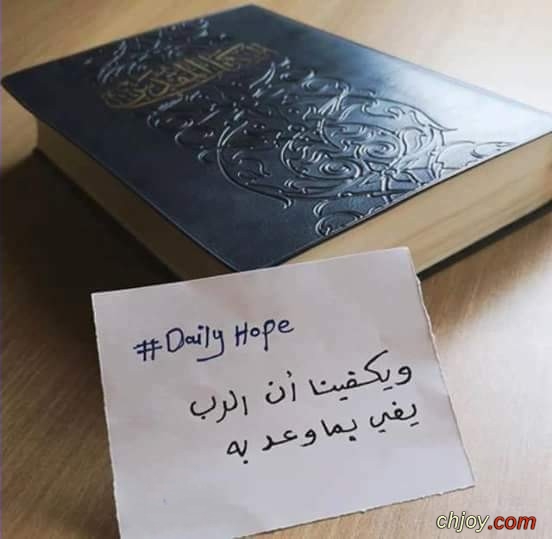 الكتاب المقدس
#Daily Hope
ويكفينا أن الرب
يفي بما وعد به
chjoy.com